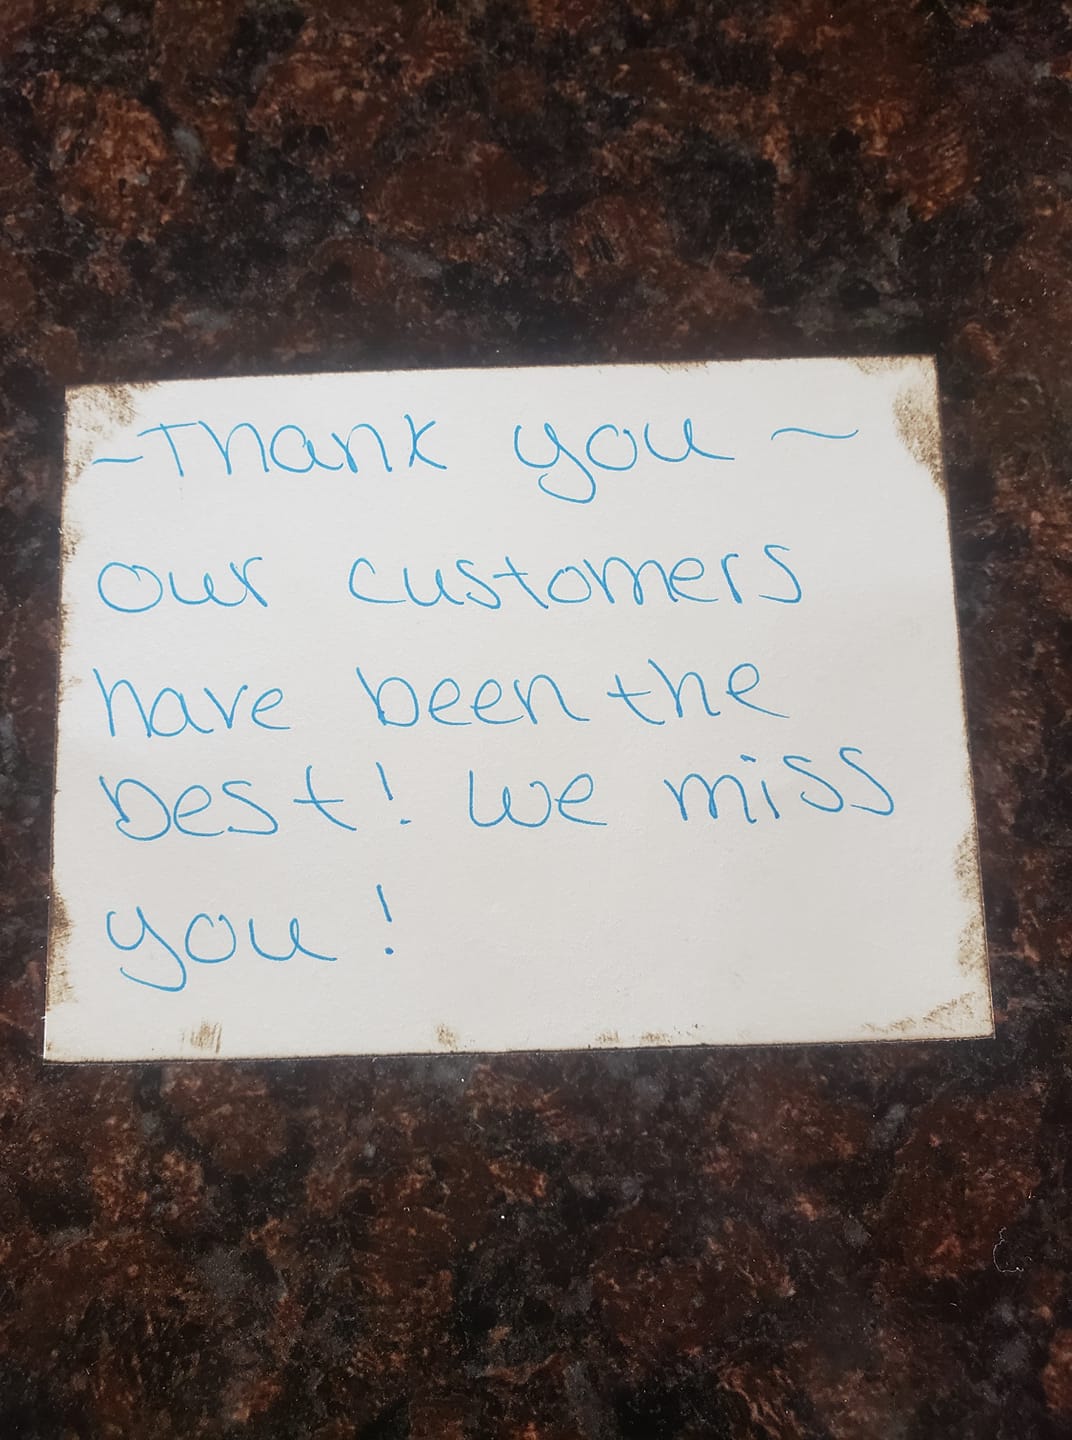 ~Thank you ~
Our customers
have been the
best! We miss
you!